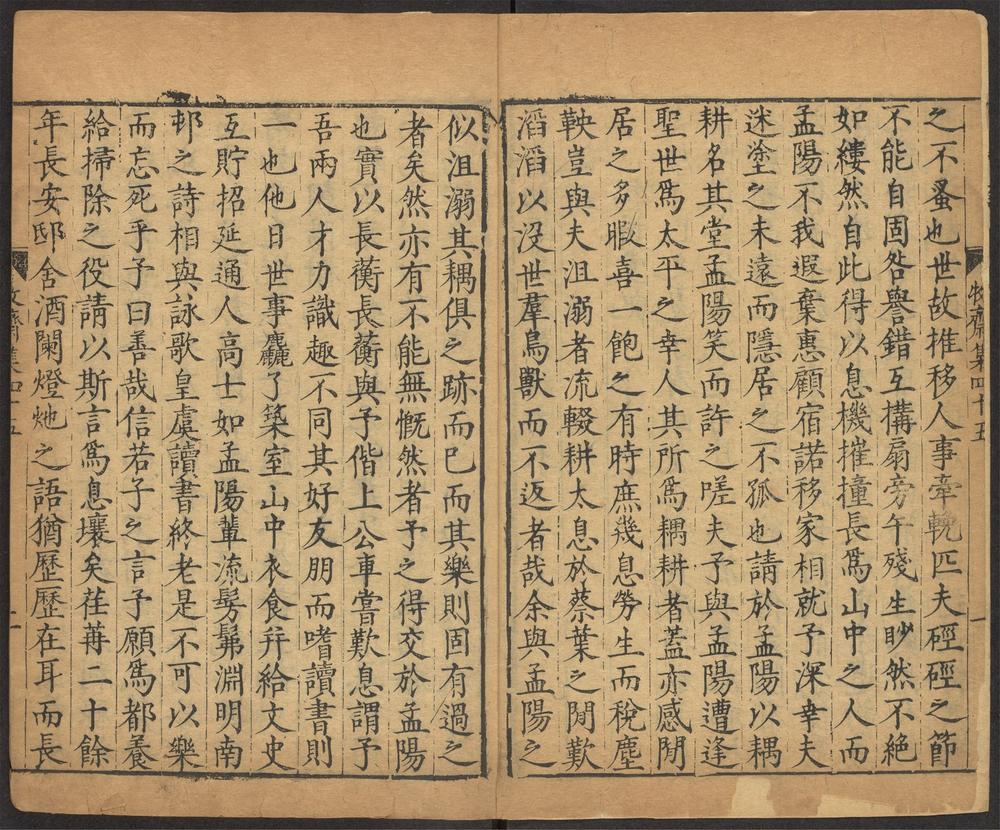 牧齋集四十五
一
之不蚤也世故推移人事牽輓匹夫硜硜之節
不能自固咎譽錯互構扇旁午殘生眇然不絕
如縷然自此得以息機摧撞長爲山中之人而
孟陽不我遐棄惠顧宿諾移家相就予深幸夫
迷塗之未遠而隱居之不孤也請於孟陽以耦
耕名其堂孟陽笑而許之嗟夫予與孟陽遭逢
聖世爲太平之幸人其所爲耦耕者蓋亦感閒
居之多暇喜一飽之有時庶幾息勞生而稅塵
鞅豈與夫沮溺者流輟耕太息於蔡葉之閒歎
滔滔以没世羣鳥獸而不返者哉余與孟陽之
似沮溺其耦俱之跡而巳而其樂則固有過之
者矣然亦有不能無慨然者予之得交於孟陽
也實以長蘅長蘅與予偕上公車嘗歎息謂予
吾兩人才力識趣不同其好友朋而嗜讀書則
一也他日世事麤了築室山中衣食幷給文史
互貯招延通人高士如孟陽輩流髣髴淵明南
邨之詩相與詠歌皇虞讀書終老是不可以樂
而忘死乎予曰善哉信若子之言予願爲都養
給掃除之役請以斯言爲息壤矣荏苒二十餘
年長安邸舍酒闌燈灺之語猶歷歷在耳而長
牧齋集四十五
二